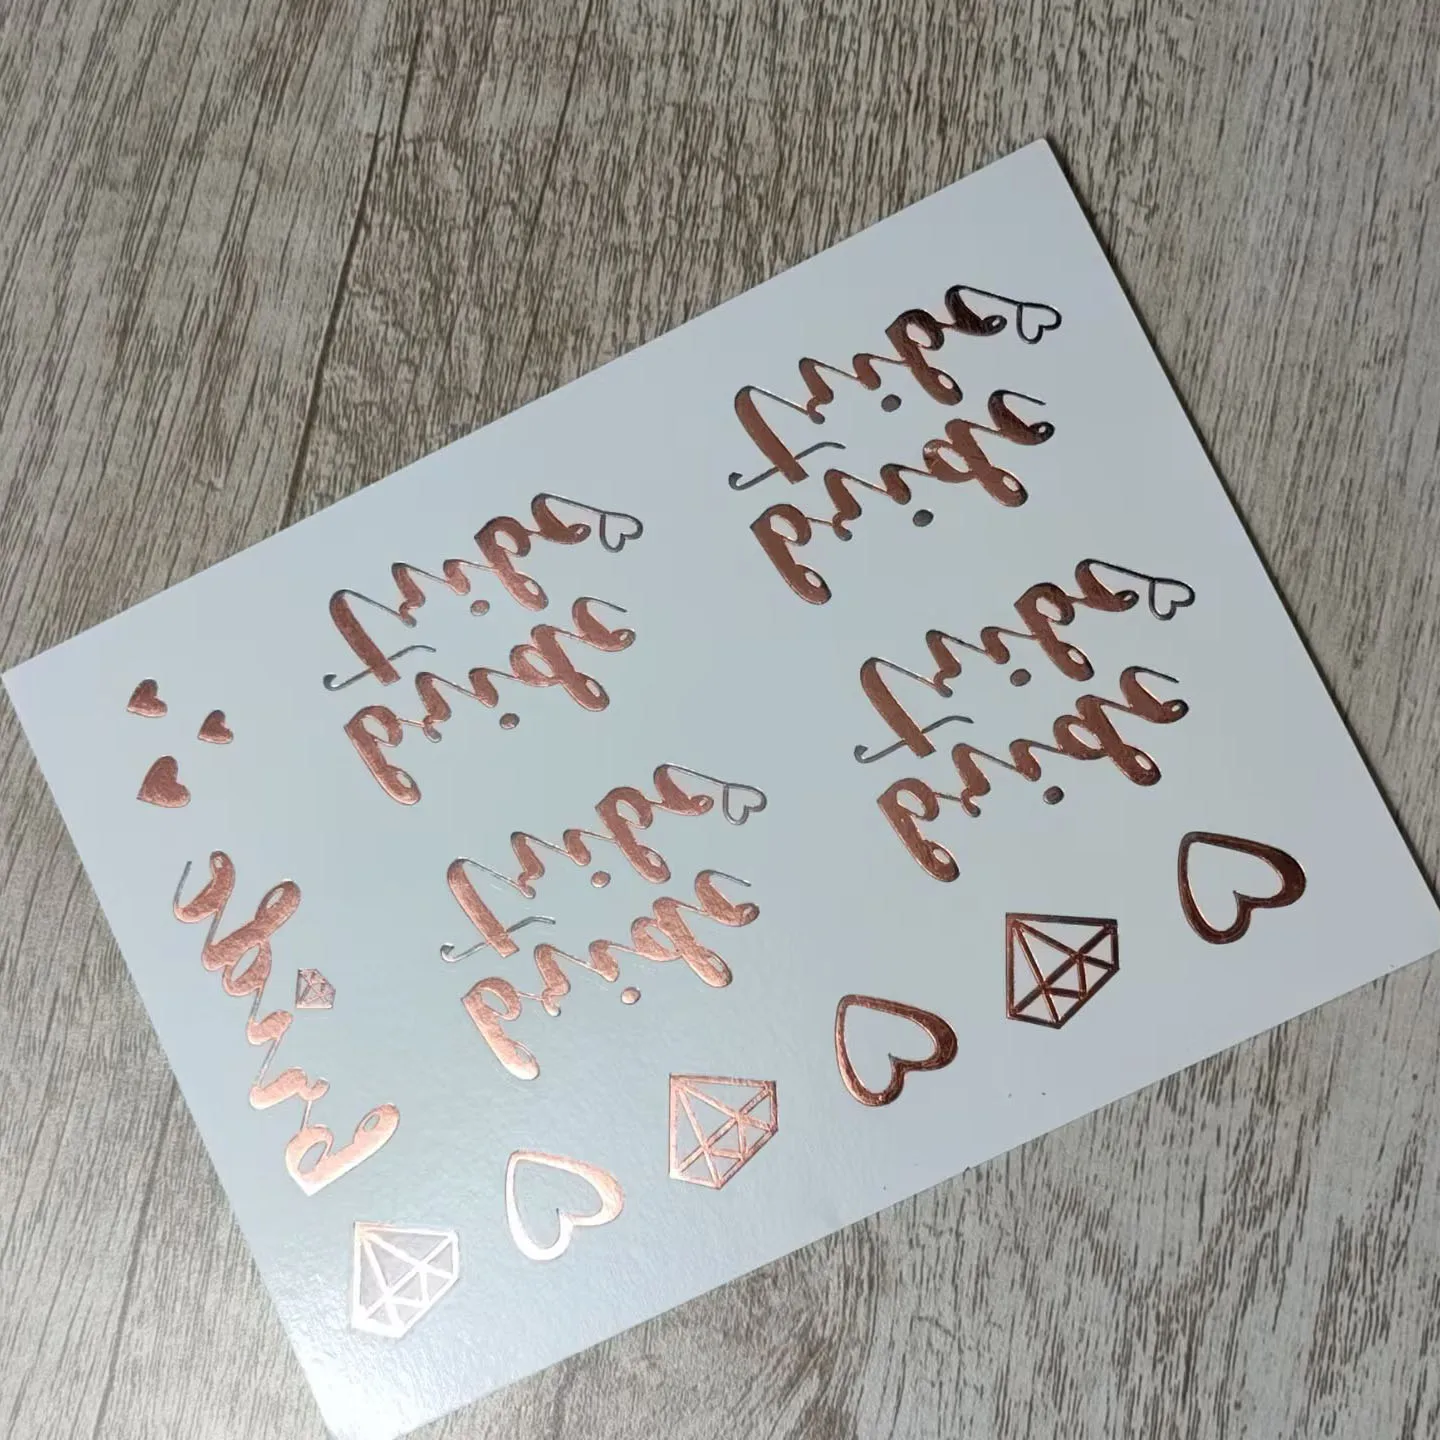 bride
tribe
bride
tribe
bride
tribe
bride
tribe
bride